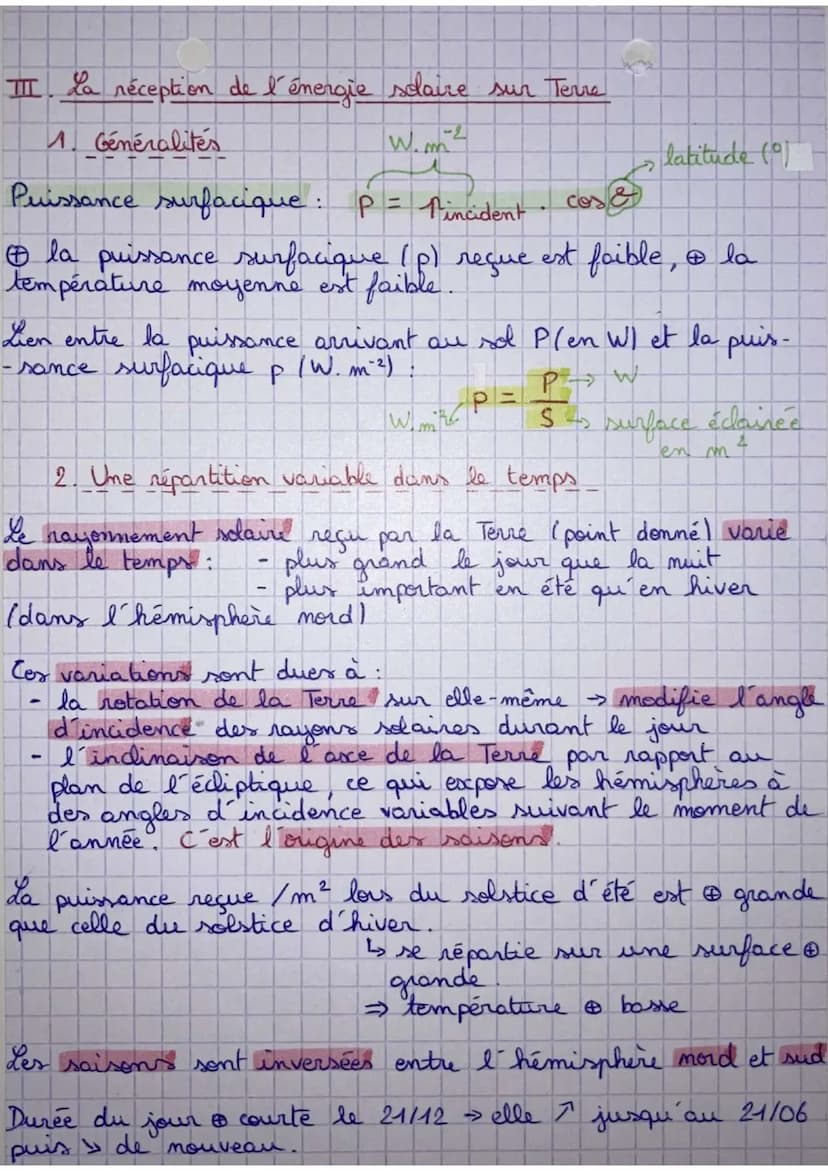 III. La réception de l'énergie solaire sur Terre
1. Généralités
W.m⁻²
latitude (°)
Puissance surfacique : p = pincident . cos
⊕ la puissance surfacique (p) reçue est faible, ⊕ la
température moyenne est faible.
Lien entre la puissance arrivant au sol P(en W) et la puis-
-sance surfacique p (W.m⁻²) :
p = P/S
→ W
W.m⁻²
↳ surface éclairée
en m²
2. Une répartition variable dans le temps
Le rayonnement solaire reçu par la Terre (point donné) varie
dans le temps : - plus grand le jour que la nuit
- plus important en été qu'en hiver
(dans l'hémisphère nord)
Ces variations sont dues à :
- la rotation de la Terre sur elle-même → modifie l'angle
d'incidence des rayons solaires durant le jour
- l'inclinaison de l'axe de la Terre par rapport au
plan de l'écliptique, ce qui expose les hémisphères à
des angles d'incidence variables suivant le moment de
l'année. C'est l'origine des saisons.
La puissance reçue /m² lors du solstice d'été est ⊕ grande
que celle du solstice d'hiver.
↳ se répartie sur une surface ⊕
grande.
⇒ température ⊕ basse
Les saisons sont inversées entre l'hémisphère nord et sud
Durée du jour ⊕ courte le 21/12 → elle ↗ jusqu'au 21/06
puis ↘ de nouveau.